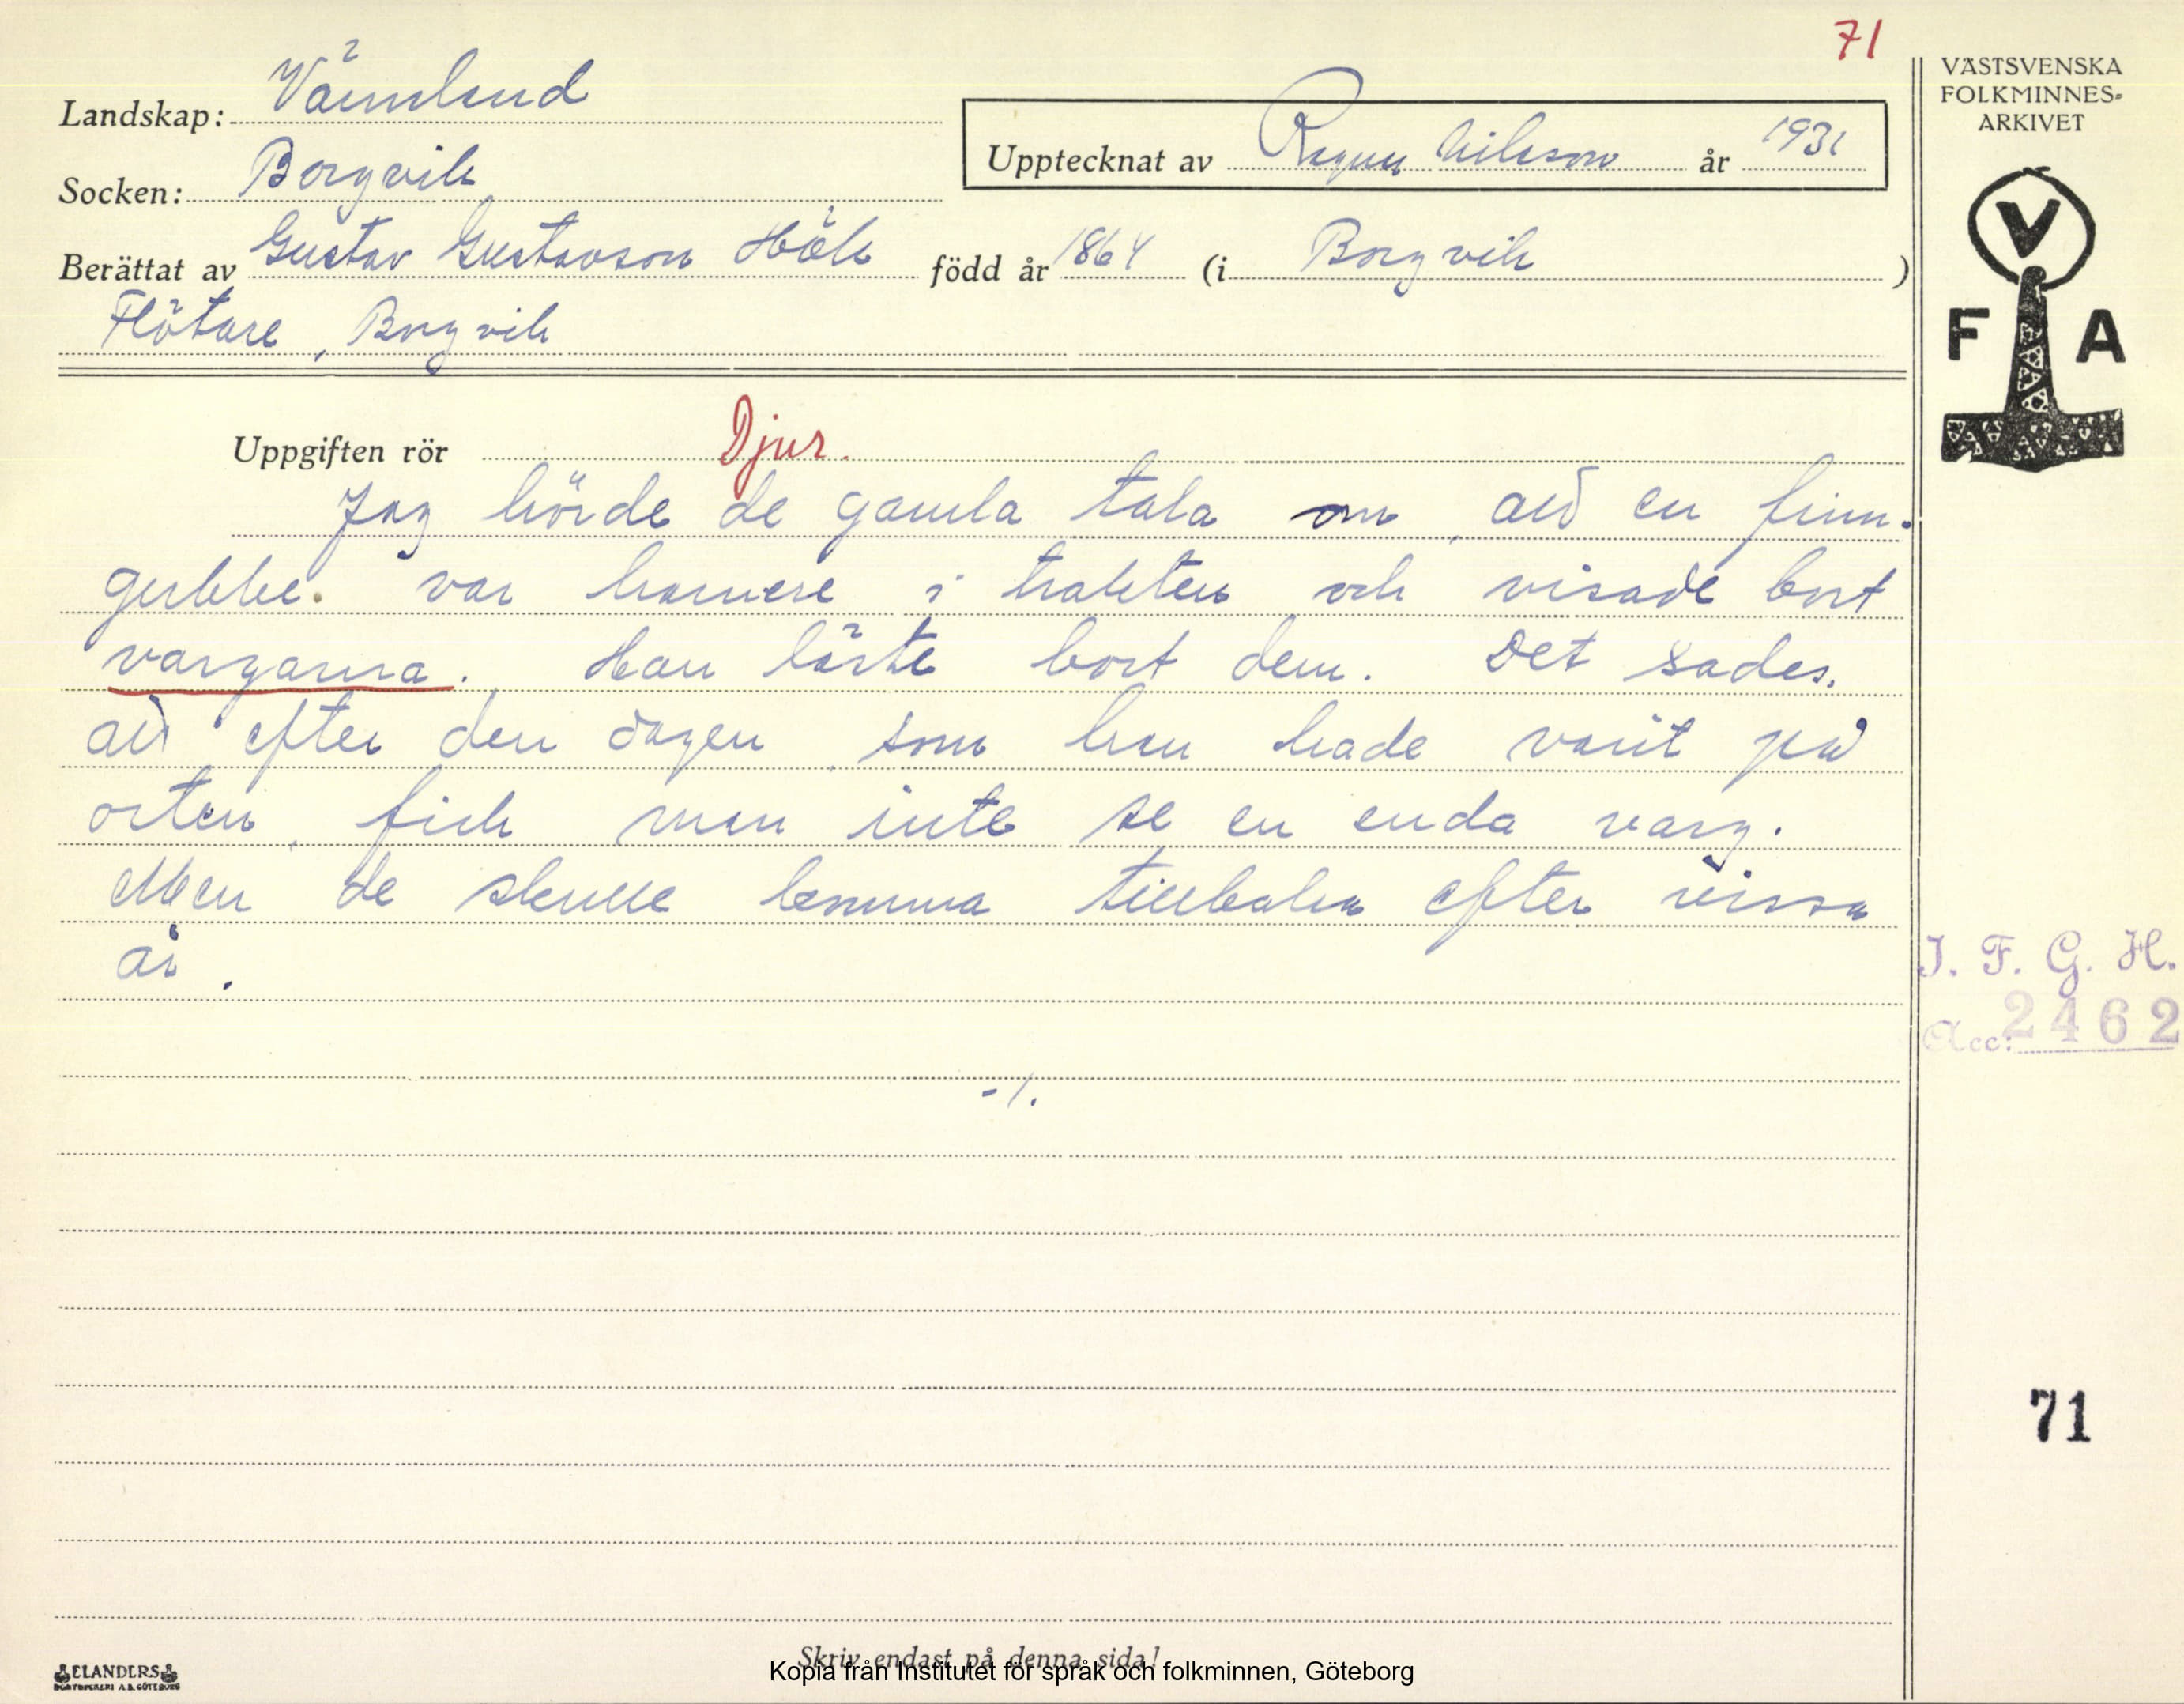 71
Landskap: Värmland
Socken: Borgvik
Upptecknat av Ragnar Nilsson år 1931
Berättat av Gustav Gustavson Hök född år 1864 (i Borgvik )
Flötare, Borgvik
Uppgiften rör Djur.
Jag hörde de gamla tala om, att en finn-
gubbe. var hemmere i trakten och visade bort
vargarna. Han läste bort dem. Det sades,
att efter den dagen, som han hade varit på
orten, fick man inte se en enda varg.
Men de skulle komma tillbaka efter vissa
år.
-/.
VÄSTSVENSKA
FOLKMINNES-
ARKIVET
V
F A
I. F. G. H.
Acc: 2462
71
ELANDERS
BOKTRYCKERI A.B. GÖTEBORG
Skriv endast på denna sida!
Kopia från Institutet för språk och folkminnen, Göteborg